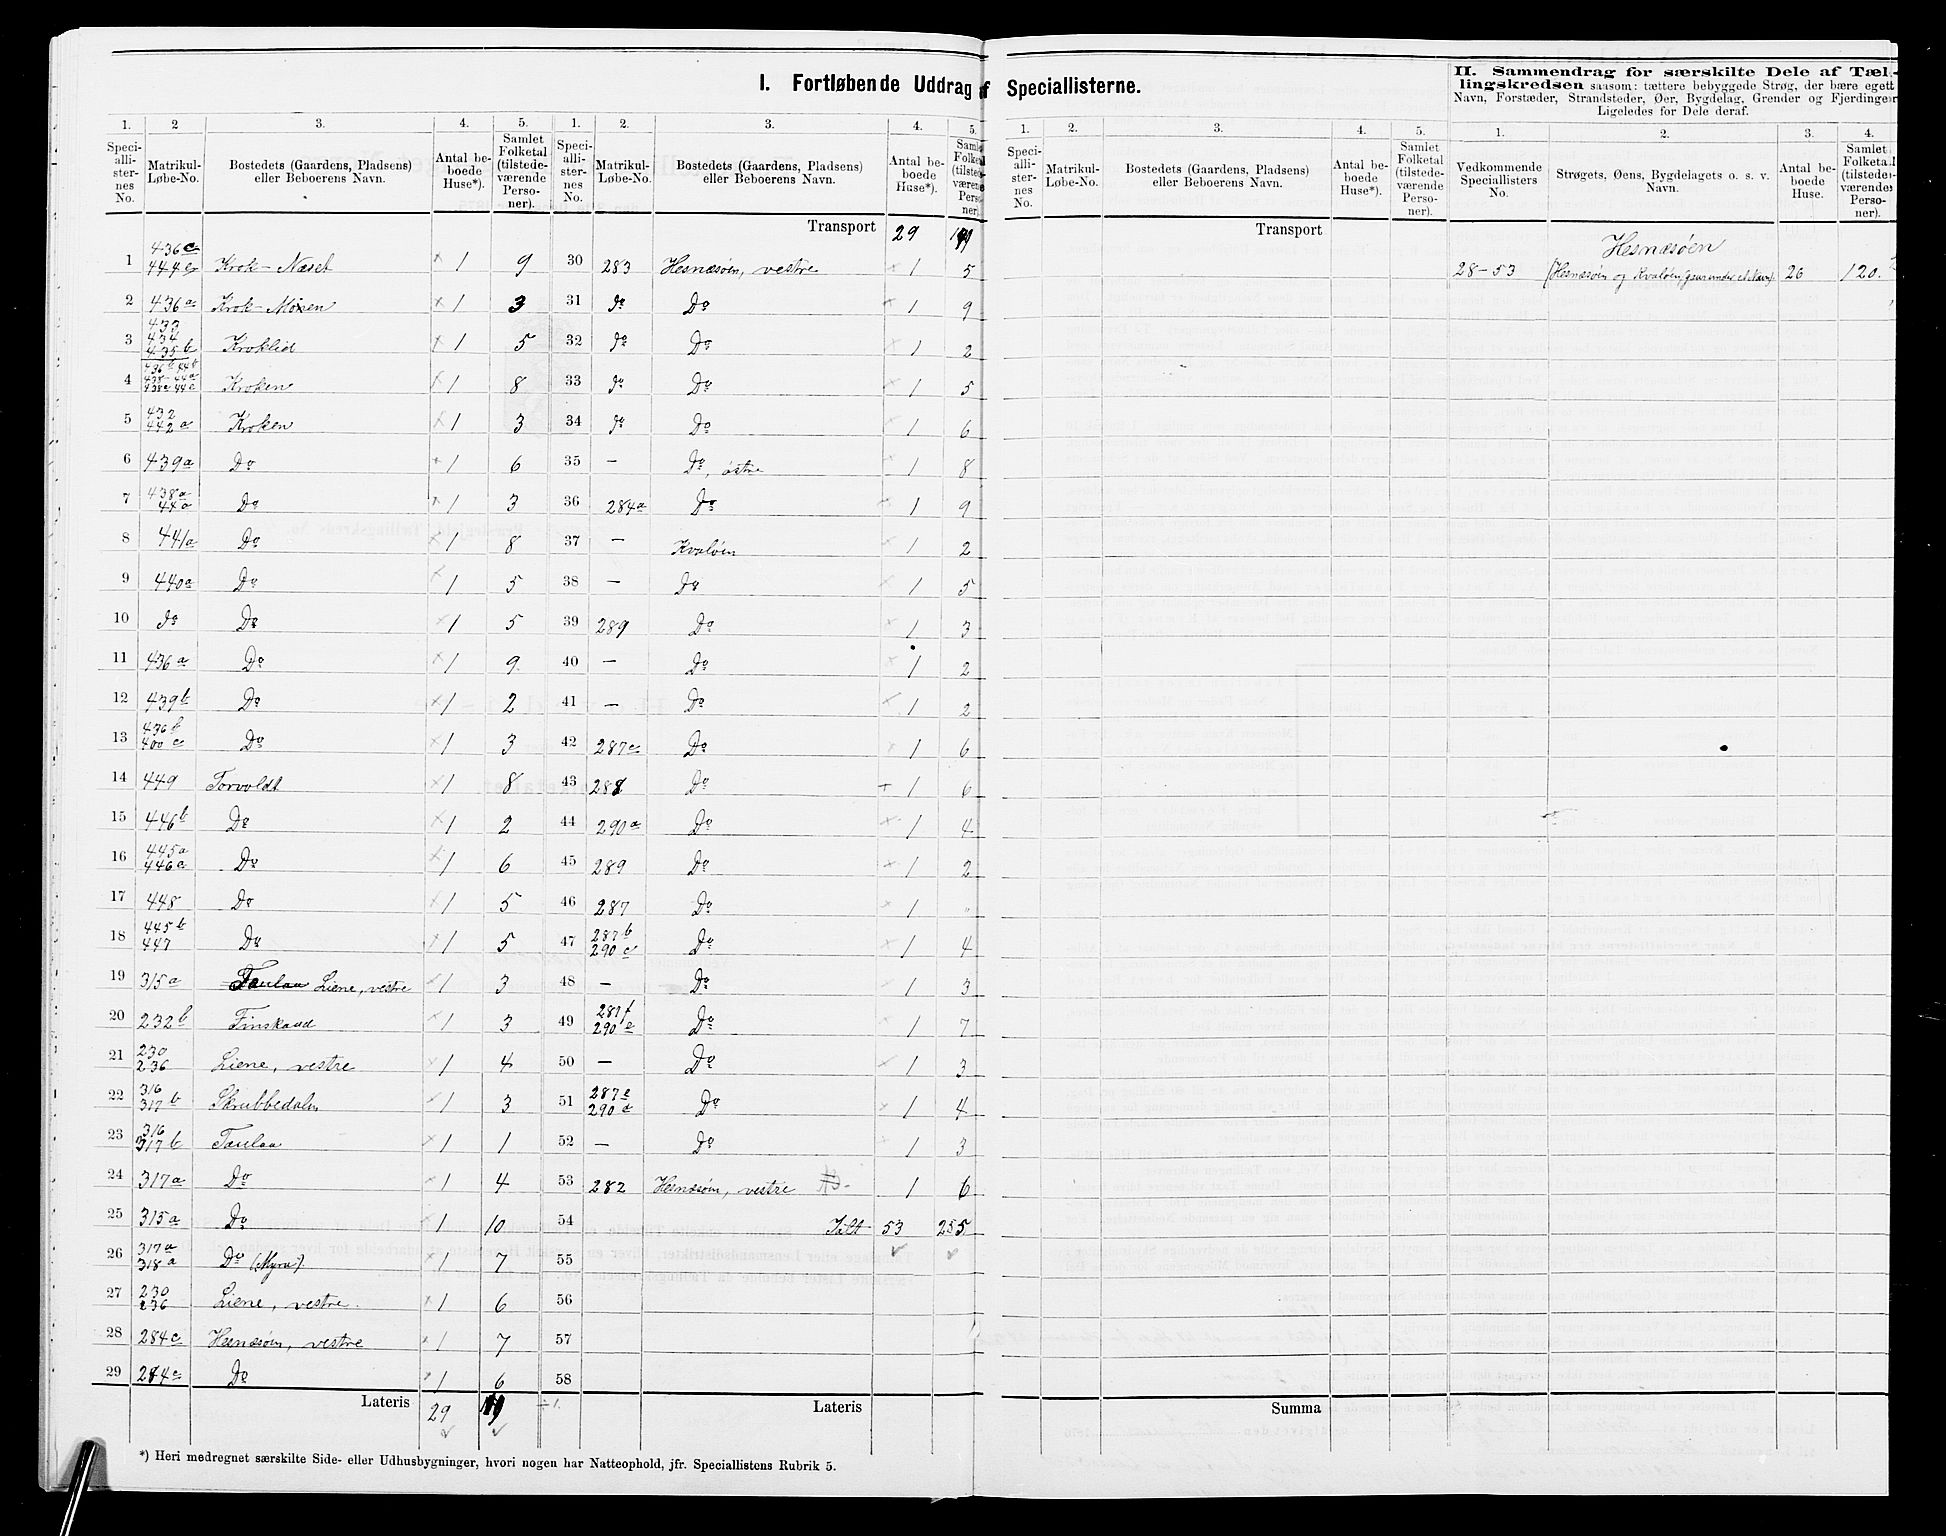 I. Fortløbende Uddrag af Speciallisterne.
II. Sammendrag for særskilte Dele af Tællingskredsen saasom: tættere bebyggede Strøg, der bære eget
Navn, Forstæder, Strandsteder, Øer, Bygdelag, Grender og Fjerdinger
Ligeledes for Dele deraf.
1. 2 3. 4. 5. 1. 2. 3. 4. 5. 1. 2. 3. 4. 5. 1. 2. 3. 4.
Speciallisternes No. Matrikul-Løbe-No. Bostedets (Gaardens, Pladsens) eller Beboerens Navn. Antal beboede Huse*). Samlet Folketal (tilstedeværende Personer).
Speciallisternes No. Matrikul-Løbe-No. Bostedets (Gaardens, Pladsens) eller Beboerens Navn. Antal beboede Huse*). Samlet Folketal (tilstedeværende Personer).
Speciallisternes No. Matrikul-Løbe-No. Bostedets (Gaardens, Pladsens) eller Beboerens Navn. Antal beboede Huse*). Samlet Folketal (tilstedeværende Personer).
Vedkommende Speciallisters No. Strøgets, Øens, Bygdelagets o. s. v. Navn. Antal beboede Huse. Samlet Folketal (tilstedeværende Personer).
Transport 29
Transport
Hesnæsøen
28-53 (Hesnæsøen og Kvaløen, gaar under et Navn) 26 120.
1 436c 444e Krok-Næset 1 9 30 283 Hesnæsøen, vestre 1 5
2 436a Krok-Moen 1 3 31 do Do 1 9
3 433 434 435b Kroklid 1 5 32 do Do 1 2
4 Kroken 1 8 33 do Do 1 5
5 432 442a Kroken 1 3 34 do Do 1 6
6 439a Do 1 6 35 — Do, østre 1 8
7 438a 44a Do 1 3 36 284a Do 1 9
8 441a Do 1 8 37 — Kvaløen 1 2
9 440a Do 1 5 38 — Do 1 5
10 do Do 1 5 39 289 Do 1 3
11 436a Do 1 9. 40 — Do 1 2
12 439b Do 1 2 41 — Do 1 2
13 436b 400c Do 1 3 42 287c Do 1 6
14 449 Torvoldt 1 8 43 288 Do 1 6
15 446b Do 1 2 44 290a Do 1 4
16 445a 446a Do 1 6 45 289 Do 1 2
17 448 Do 1 5 46 287 Do 1 "
18 445b 447 Do 1 5 47 287b 290c Do 1 4
19 315a Taulaa Liene, vestre 1 3 48 — Do 1 3
20 232b Finskaad 1 3 49 287f 290e Do 1 7
21 230 236 Liene, vestre 1 4 50 — Do 1 3
22 316 317b Skrubbedalen 1 3 51 287e 290d Do 1 4
23 316 317b Taulaa 1 1 52 — Do 1 3
24 317a Do 1 4 53 282 Hesnæsøen, vestre 1 6
25 315a Do 1 10 54 Ialt 53 255
26 317a 318a Do (Myra) 1 7 55
27 230 236 Liene, vestre. 1 6 56
28 284c Hesnæsøen, vestre 1 7 57
29 284c Do 1 6 58
Lateris 29 Lateris Summa
*) Heri medregnet særskilte Side- eller Udhusbygninger, hvori nogen har Natteophold, jfr. Speciallistens Rubrik 5.